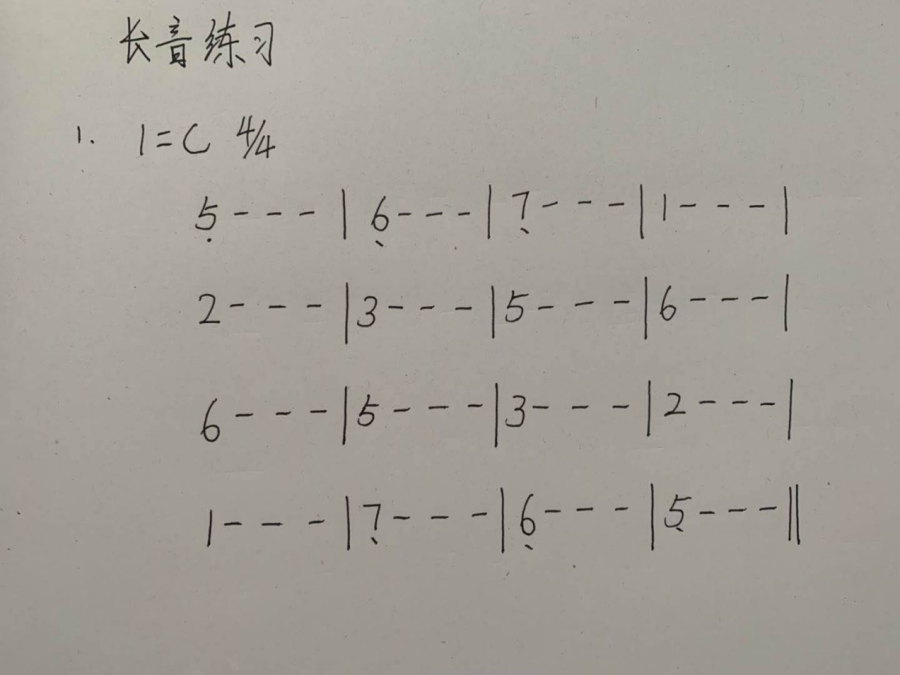 长音练习
1. 1=C 4/4
5̣ - - - | 6̣ - - - | 7̣ - - - | 1 - - - |
2 - - - | 3 - - - | 5 - - - | 6 - - - |
6 - - - | 5 - - - | 3 - - - | 2 - - - |
1 - - - | 7̣ - - - | 6̣ - - - | 5̣ - - - ‖